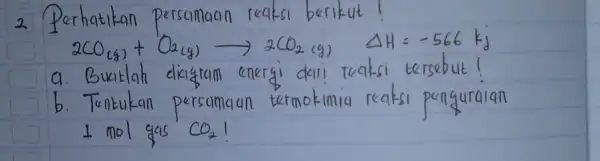 2 Perhatikan persamaan reaksi berikut !
2CO(g) + O2(g) → 2CO2 (g) ΔH = -566 kj
a. Buatlah diagram energi dari reaksi tersebut !
b. Tentukan persamaan termokimia reaksi penguraian
1 mol gas CO2 !